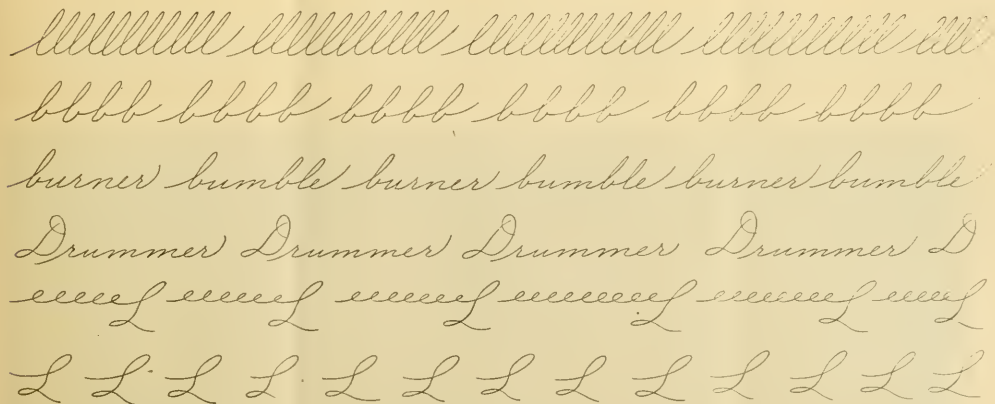 llllllllll llllllllll llllllllll llllllllll llll
bbbb bbbb bbbb bbbb bbbb bbbb
burner bumble burner bumble burner bumble
Drummer Drummer Drummer Drummer D
eeeeeL eeeeeeL eeeeeeeL eeeeeeeeeL eeeeeeeeL eeeeeL
L L L L L L L L L L L L L